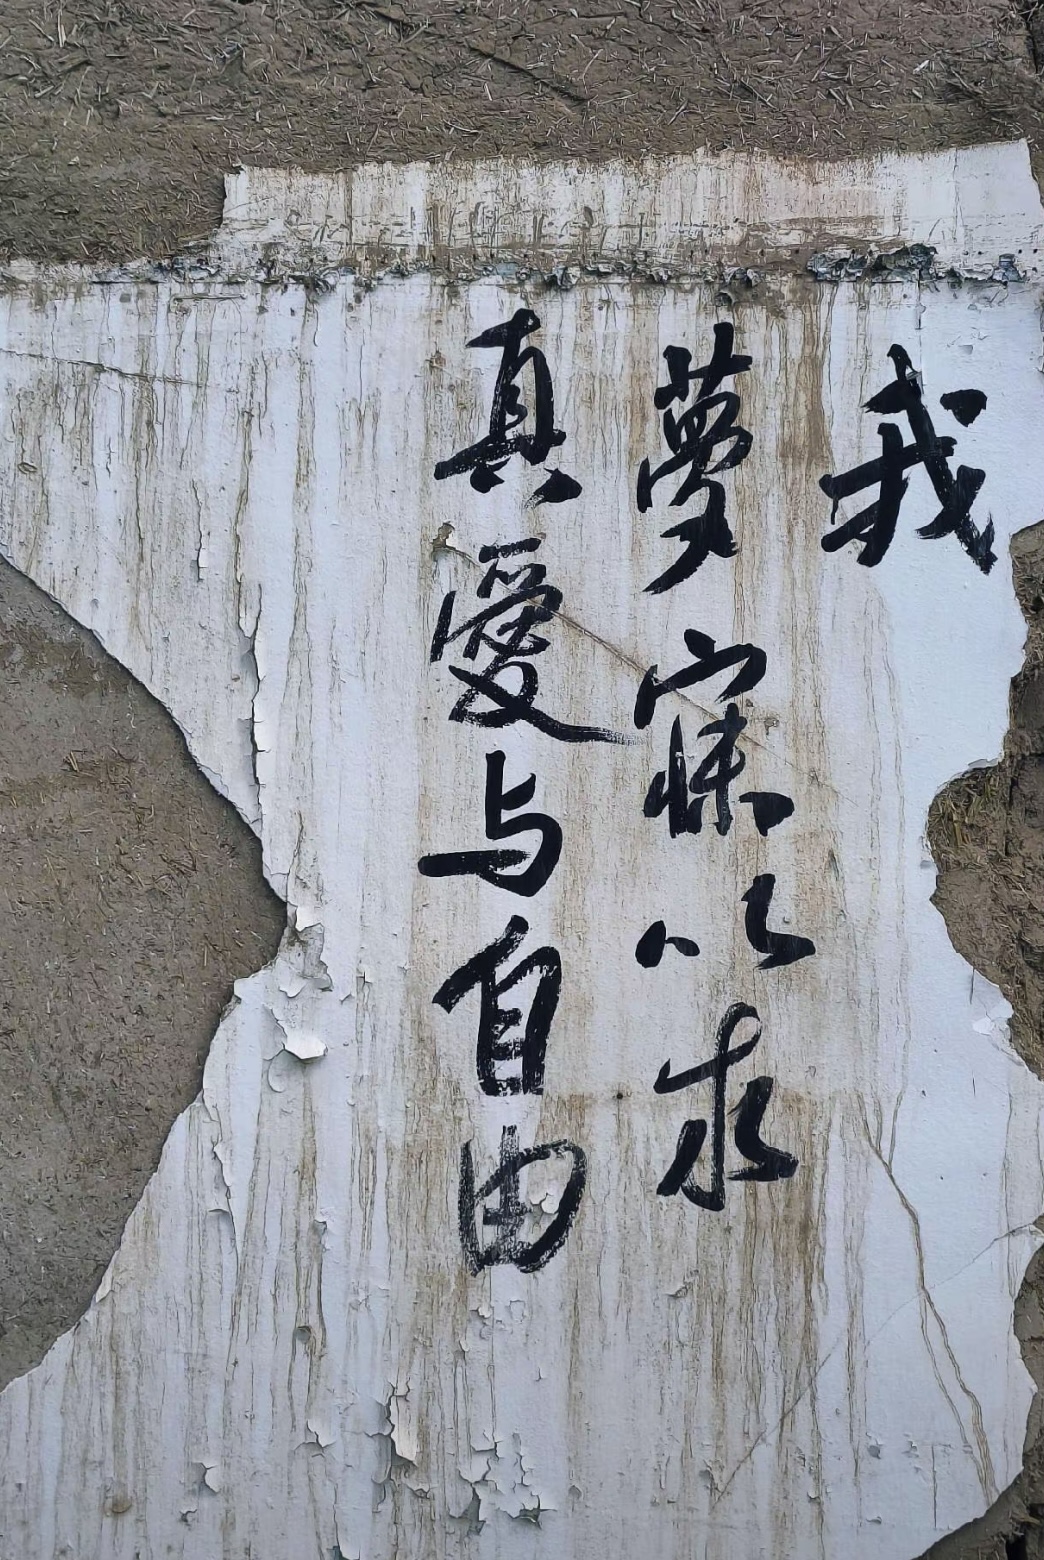 我
夢寐以求
真愛与自由